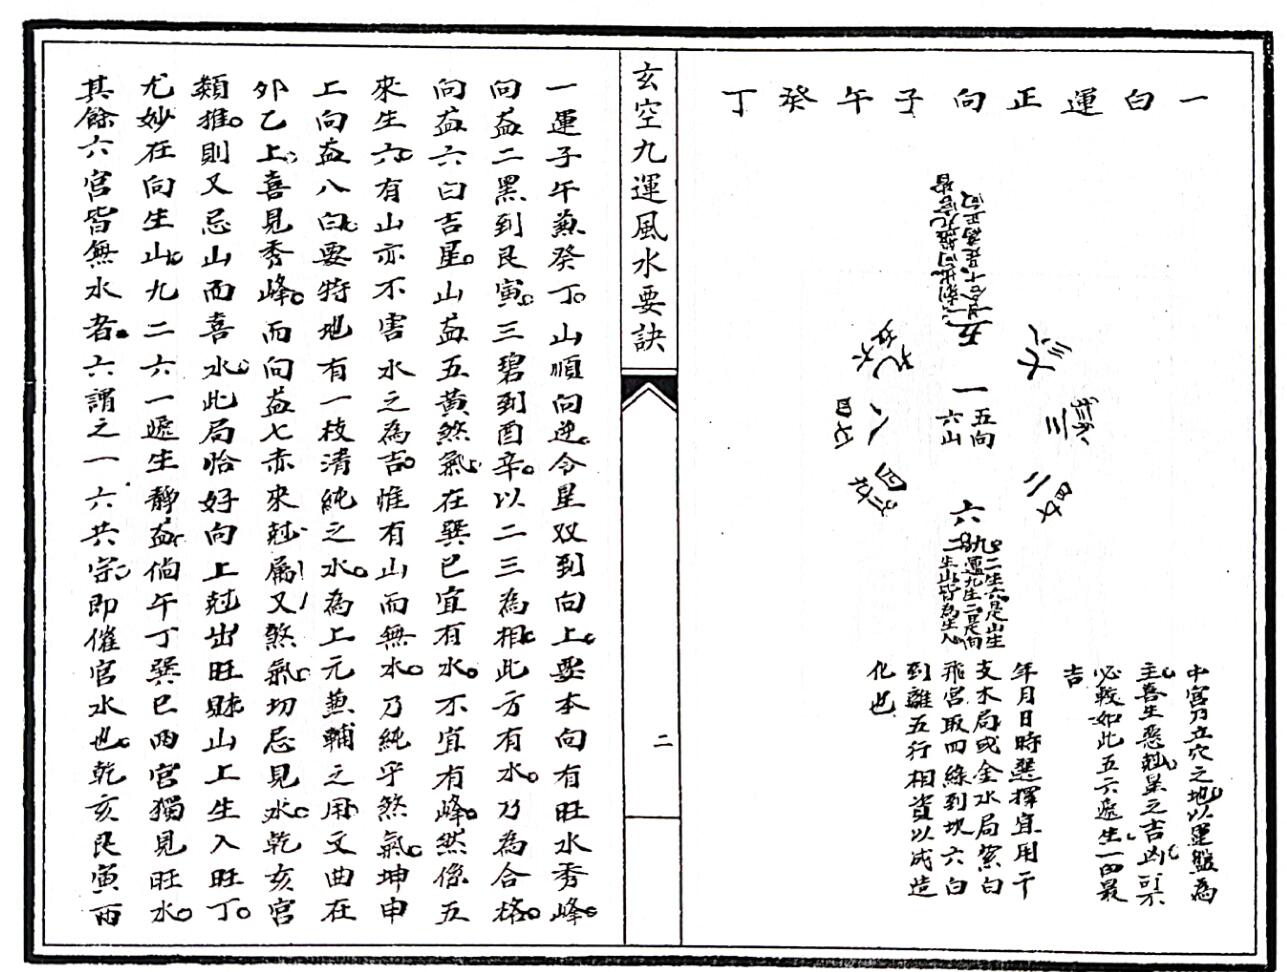 一白運正向子午癸丁
五
一
五向
六山
六
八
四七
三
二
四
九二生六是山生
九運九生二是向
一生山皆為生入
中宮乃立穴之地以運盤為
主喜生惡尅星之吉凶可不
必較如此五六遞生一四最
吉
年月日時選擇宜用干
支木局或金水局紫白
飛宮取四綠到坎六白
到離五行相資以成造
化也
玄空九運風水要訣
二
一運子午兼癸丁。山順向逆。令星双到向上。要本向有旺水秀峰。
向益二黑到艮寅。三碧到酉辛。以二三為相。此方有水。乃為合格。
向益六白吉星。山益五黃煞氣。在巽巳宜有水。不宜有峰。然係五
來生六。有山亦不害水之為吉。惟有山而無水。乃純乎煞氣。坤申
上向益八白。要特地有一枝清純之水。為上元兼輔之用。文曲在
卯乙上。喜見秀峰。而向益七赤來尅。屬又煞氣。切忌見水。乾亥宮
類推。則又忌山而喜水。此局恰好向上尅出旺財。山上生入旺丁。
尤妙在向生山。九二六一遞生靜益。倘午丁巽巳兩宮獨見旺水。
其餘六宮皆無水者。六謂之一六共宗。即催官水也。乾亥艮寅兩